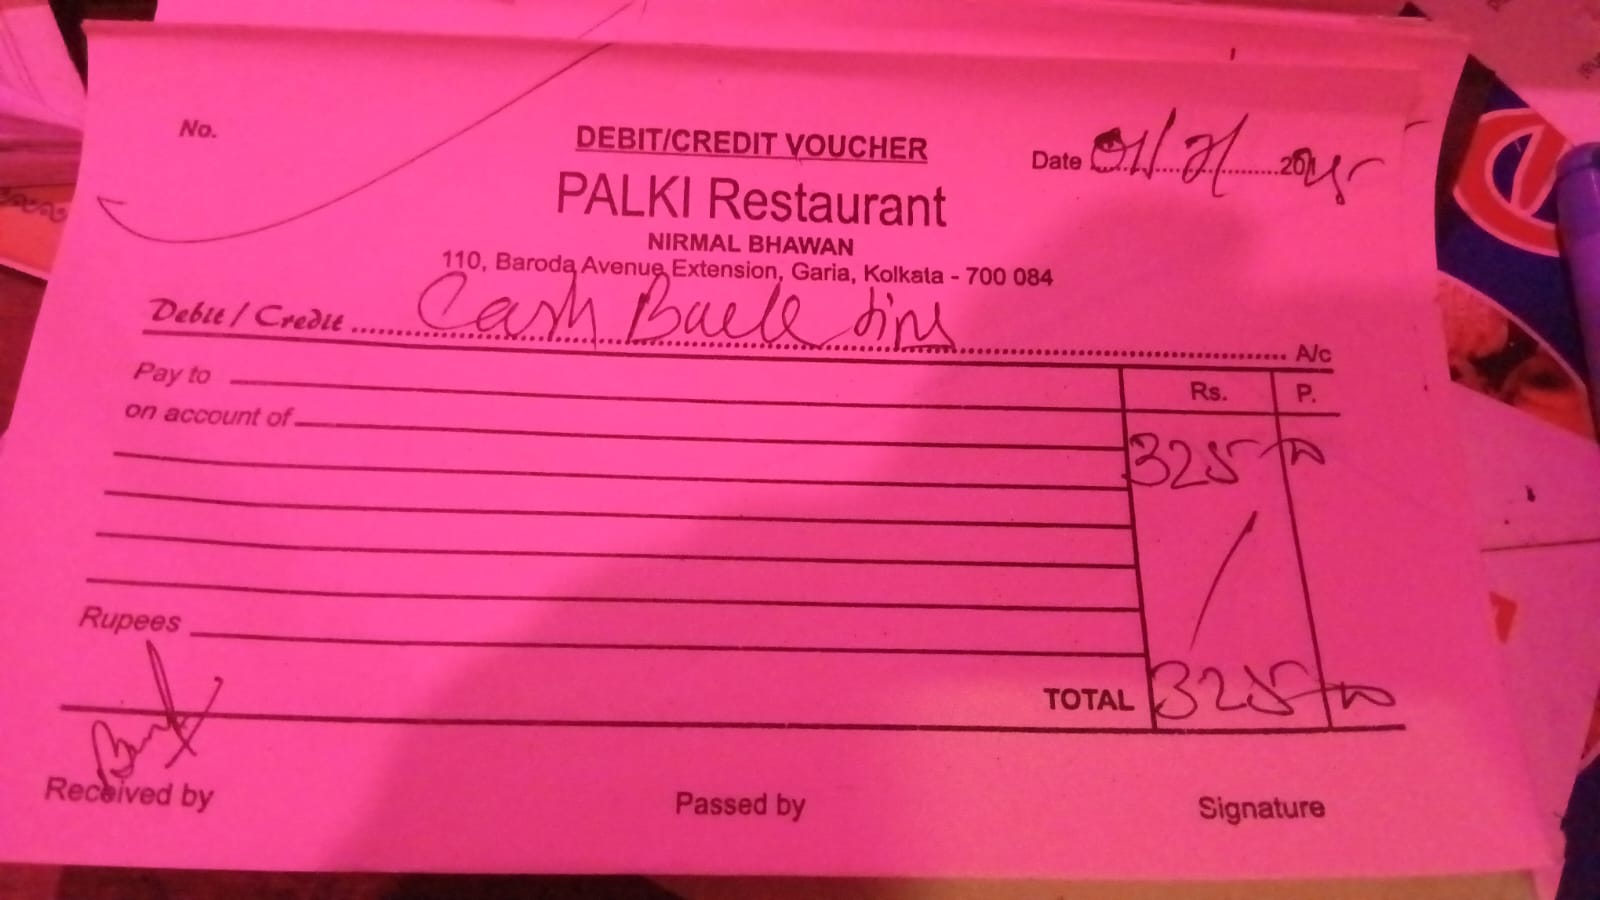 No.
DEBIT/CREDIT VOUCHER
Date 20
PALKI Restaurant
NIRMAL BHAWAN
110, Baroda Avenue Extension, Garia, Kolkata - 700 084
Debit / Credit Cash Back A/c
Pay to Rs. P.
on account of
325
Rupees
TOTAL 325
Received by Passed by Signature